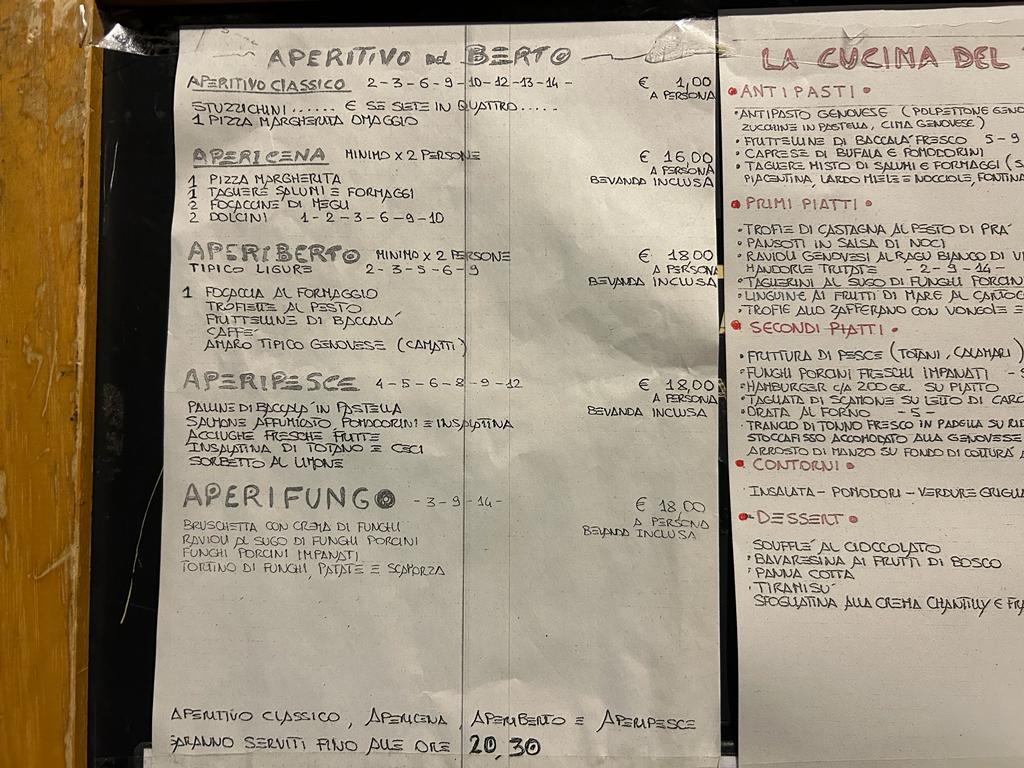 APERITIVO del BERTO
APERITIVO CLASSICO 2-3-6-9-10-12-13-14- € 1,00
A PERSONA
STUZZICHINI...... E SE SIETE IN QUATTRO.....
1 PIZZA MARGHERITA OMAGGIO
APERICENA MINIMO x 2 PERSONE € 16,00
A PERSONA
BEVANDA INCLUSA
1 PIZZA MARGHERITA
1 TAGLIERE SALUMI E FORMAGGI
2 FOCACCINE DI MEGLI
2 DOLCINI 1-2-3-6-9-10
APERIBERTO MINIMO x 2 PERSONE € 18,00
TIPICO LIGURE 2-3-5-6-9 A PERSONA
BEVANDA INCLUSA
1 FOCACCIA AL FORMAGGIO
TROFIETTE AL PESTO
FRITTELLINE DI BACCALA'
CAFFE'
AMARO TIPICO GENOVESE (CAMATTI)
APERIPESCE 4-5-6-8-9-12 € 18,00
A PERSONA
BEVANDA INCLUSA
PALLINE DI BACCALA' IN PASTELLA
SALMONE AFFUMICATO, POMODORINI E INSALATINA
ACCIUGHE FRESCHE FRITTE
INSALATINA DI TOTANO E CECI
SORBETTO AL LIMONE
APERIFUNGO -3-9-14- € 18,00
A PERSONA
BEVANDA INCLUSA
BRUSCHETTA CON CREMA DI FUNGHI
RAVIOLI AL SUGO DI FUNGHI PORCINI
FUNGHI PORCINI IMPANATI
TORTINO DI FUNGHI, PATATE E SCAMORZA
APERITIVO CLASSICO, APERICENA, APERIBERTO E APERIPESCE
SARANNO SERVITI FINO ALLE ORE 20,30
LA CUCINA DEL
• ANTIPASTI •
• ANTIPASTO GENOVESE (POLPETTONE GENO
ZUCCHINE IN PASTELLA, CIMA GENOVESE)
• FRITTELLINE DI BACCALA' FRESCO 5-9
• CAPRESE DI BUFALA E POMODORINI
• TAGLIERE MISTO DI SALUMI E FORMAGGI (S
PIACENTINA, LARDO MIELE E NOCCIOLE, FONTINA
• PRIMI PIATTI •
• TROFIE DI CASTAGNA AL PESTO DI PRA'
• PANSOTI IN SALSA DI NOCI
• RAVIOLI GENOVESI AL RAGU BIANCO DI VI
MANDORLE TRITATE -2-9-14-
• TAGLIERINI AL SUGO DI FUNGHI PORCIN
• LINGUINE AI FRUTTI DI MARE AL CARTOC
• TROFIE ALLO ZAFFERANO CON VONGOLE E
• SECONDI PIATTI •
• FRITTURA DI PESCE (TOTANI, CALAMARI)
• FUNGHI PORCINI FRESCHI IMPANATI - S
• HAMBURGER C/A 200GR. SU PIATTO
• TAGLIATA DI SCAMONE SU LETTO DI CARC
• ORATA AL FORNO -5-
• TRANCIO DI TONNO FRESCO IN PADELLA SU RID
STOCCAFISSO ACCOMODATO ALLA GENOVESE
ARROSTO DI MANZO SU FONDO DI COTTURA A
• CONTORNI •
INSALATA - POMODORI - VERDURE GRIGLIA
• DESSERT •
SOUFFLE' AL CIOCCOLATO
• BAVARESINA AI FRUTTI DI BOSCO
• PANNA COTTA
• TIRAMISU'
SFOGLIATINA ALLA CREMA CHANTILLY E FR